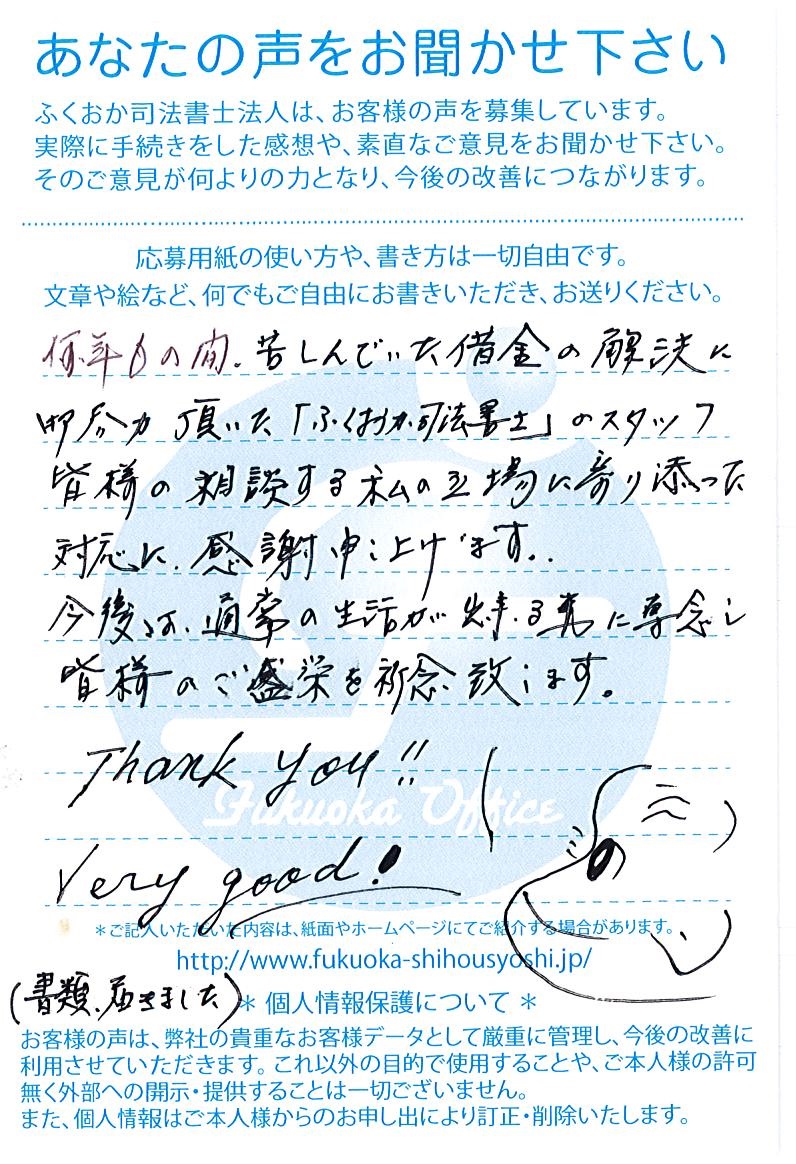 あなたの声をお聞かせ下さい
ふくおか司法書士法人は、お客様の声を募集しています。
実際に手続きをした感想や、素直なご意見をお聞かせ下さい。
そのご意見が何よりの力となり、今後の改善につながります。
応募用紙の使い方や、書き方は一切自由です。
文章や絵など、何でもご自由にお書きいただき、お送りください。
何年もの間、苦しんでいた借金の解決に
御尽力頂いた「ふくおか司法書士」のスタッフ
皆様の相談する私の立場に寄り添った
対応に、感謝申し上げます。
今後は、通常の生活が出来る事に専念し
皆様のご盛栄を祈念致します。
Thank you!!
Fukuoka Office
Very good!
＊ご記入いただいた内容は、紙面やホームページにてご紹介する場合があります。
http://www.fukuoka-shihousyoshi.jp/
(書類、届きました)
＊ 個人情報保護について ＊
お客様の声は、弊社の貴重なお客様データとして厳重に管理し、今後の改善に
利用させていただきます。これ以外の目的で使用することや、ご本人様の許可
無く外部への開示・提供することは一切ございません。
また、個人情報はご本人様からのお申し出により訂正・削除いたします。